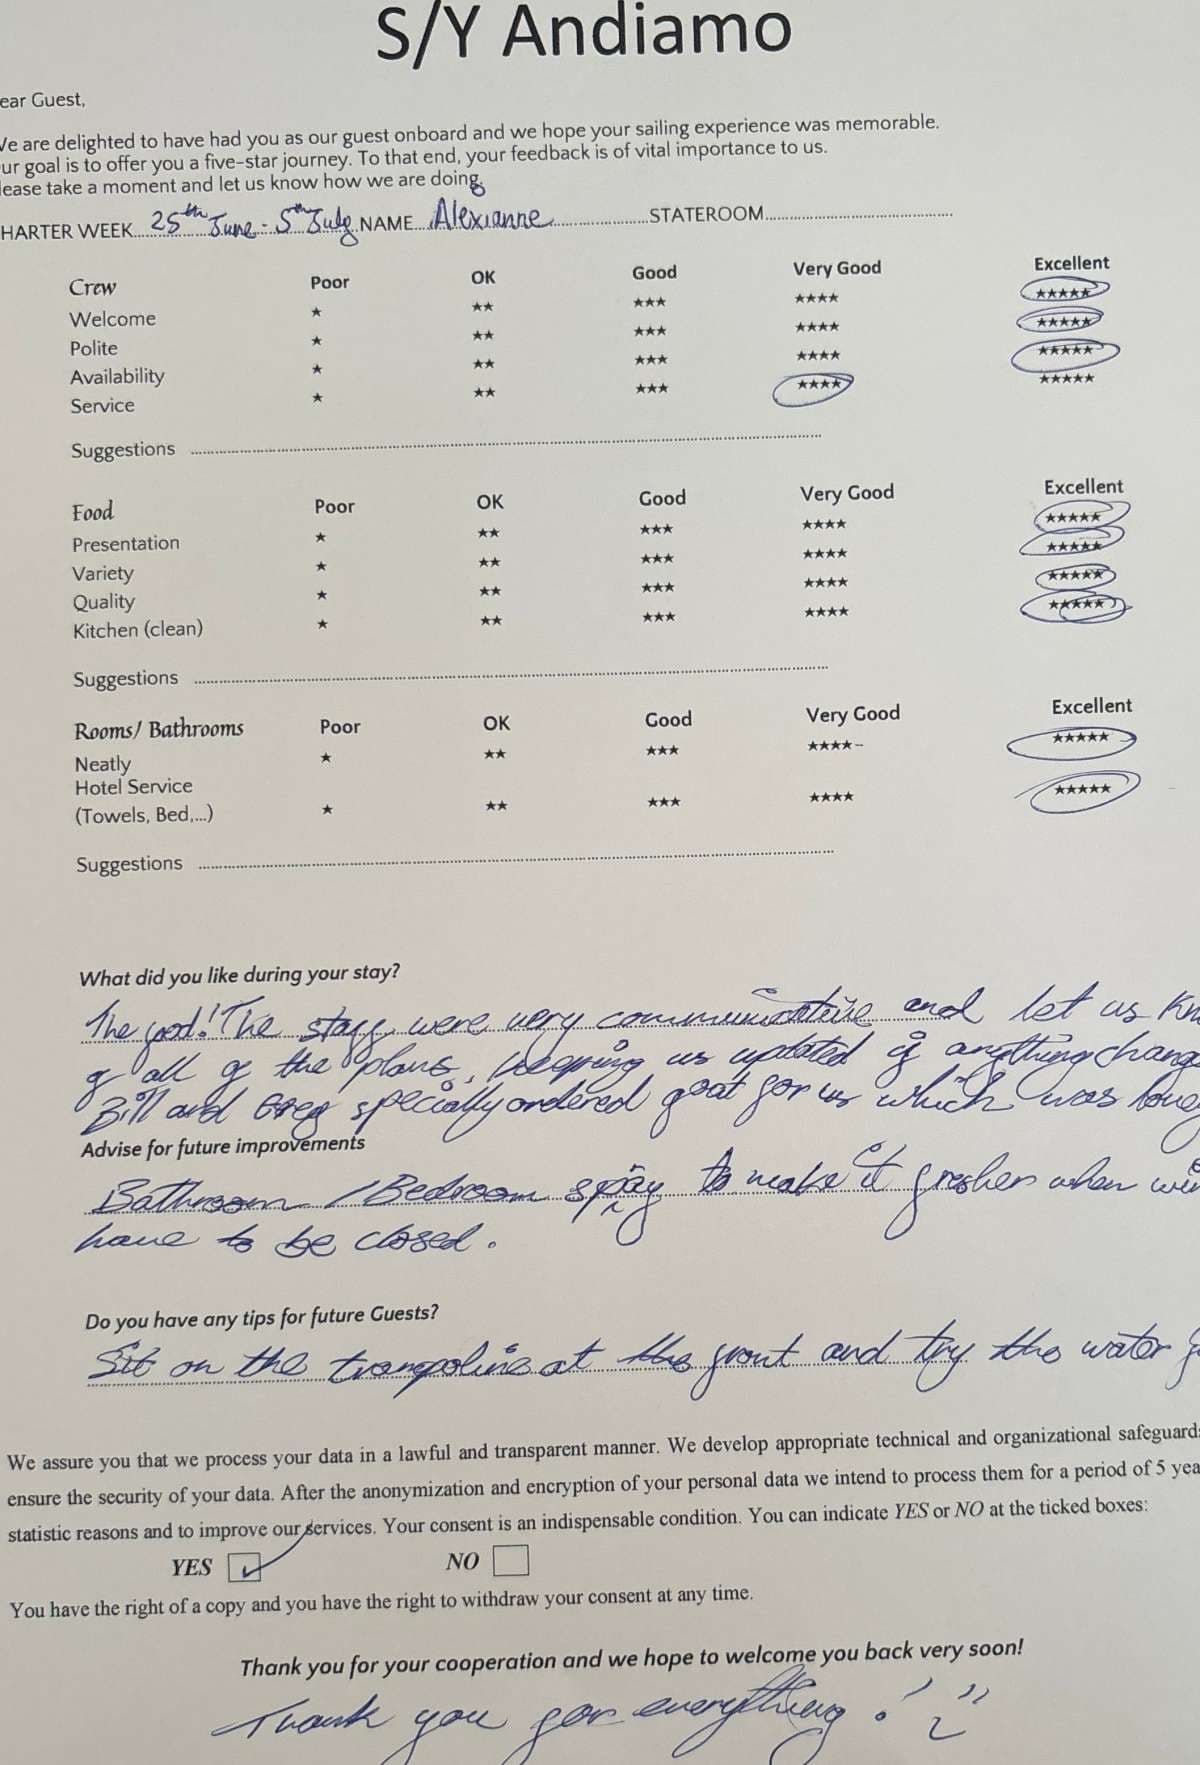 S/Y Andiamo
ear Guest,
We are delighted to have had you as our guest onboard and we hope your sailing experience was memorable.
ur goal is to offer you a five-star journey. To that end, your feedback is of vital importance to us.
lease take a moment and let us know how we are doing.
HARTER WEEK 25th June - 5th July NAME Alexianne STATEROOM
Crew Poor OK Good Very Good Excellent
Welcome ★ ★★ ★★★ ★★★★ ★★★★★
Polite ★ ★★ ★★★ ★★★★ ★★★★★
Availability ★ ★★ ★★★ ★★★★ ★★★★★
Service ★ ★★ ★★★ ★★★★ ★★★★★
Suggestions
Food Poor OK Good Very Good Excellent
Presentation ★ ★★ ★★★ ★★★★ ★★★★★
Variety ★ ★★ ★★★ ★★★★ ★★★★★
Quality ★ ★★ ★★★ ★★★★ ★★★★★
Kitchen (clean) ★ ★★ ★★★ ★★★★ ★★★★★
Suggestions
Rooms/ Bathrooms Poor OK Good Very Good Excellent
Neatly ★ ★★ ★★★ ★★★★- ★★★★★
Hotel Service
(Towels, Bed,...) ★ ★★ ★★★ ★★★★ ★★★★★
Suggestions
What did you like during your stay?
The food! The staff were very communicative and let us kn
of all of the plans, keeping us updated if anything chang
Bill and Greg specially ordered goat for us which was
Advise for future improvements
Bathroom / Bedroom spray to make it fresher when wi
have to be closed.
Do you have any tips for future Guests?
Sit on the trampoline at the front and try the water
We assure you that we process your data in a lawful and transparent manner. We develop appropriate technical and organizational safeguard
ensure the security of your data. After the anonymization and encryption of your personal data we intend to process them for a period of 5 yea
statistic reasons and to improve our services. Your consent is an indispensable condition. You can indicate YES or NO at the ticked boxes:
YES ✓ NO
You have the right of a copy and you have the right to withdraw your consent at any time.
Thank you for your cooperation and we hope to welcome you back very soon!
Thank you for everything!